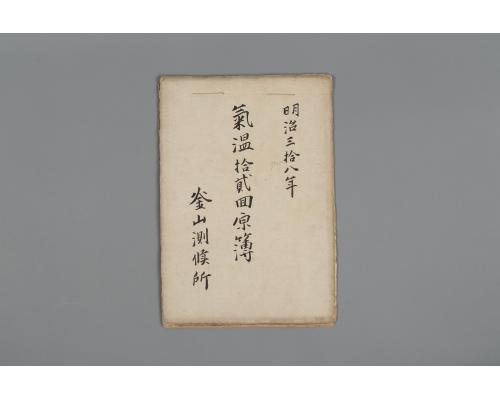 明治三拾八年
氣温拾貳回原簿
釜山測候所